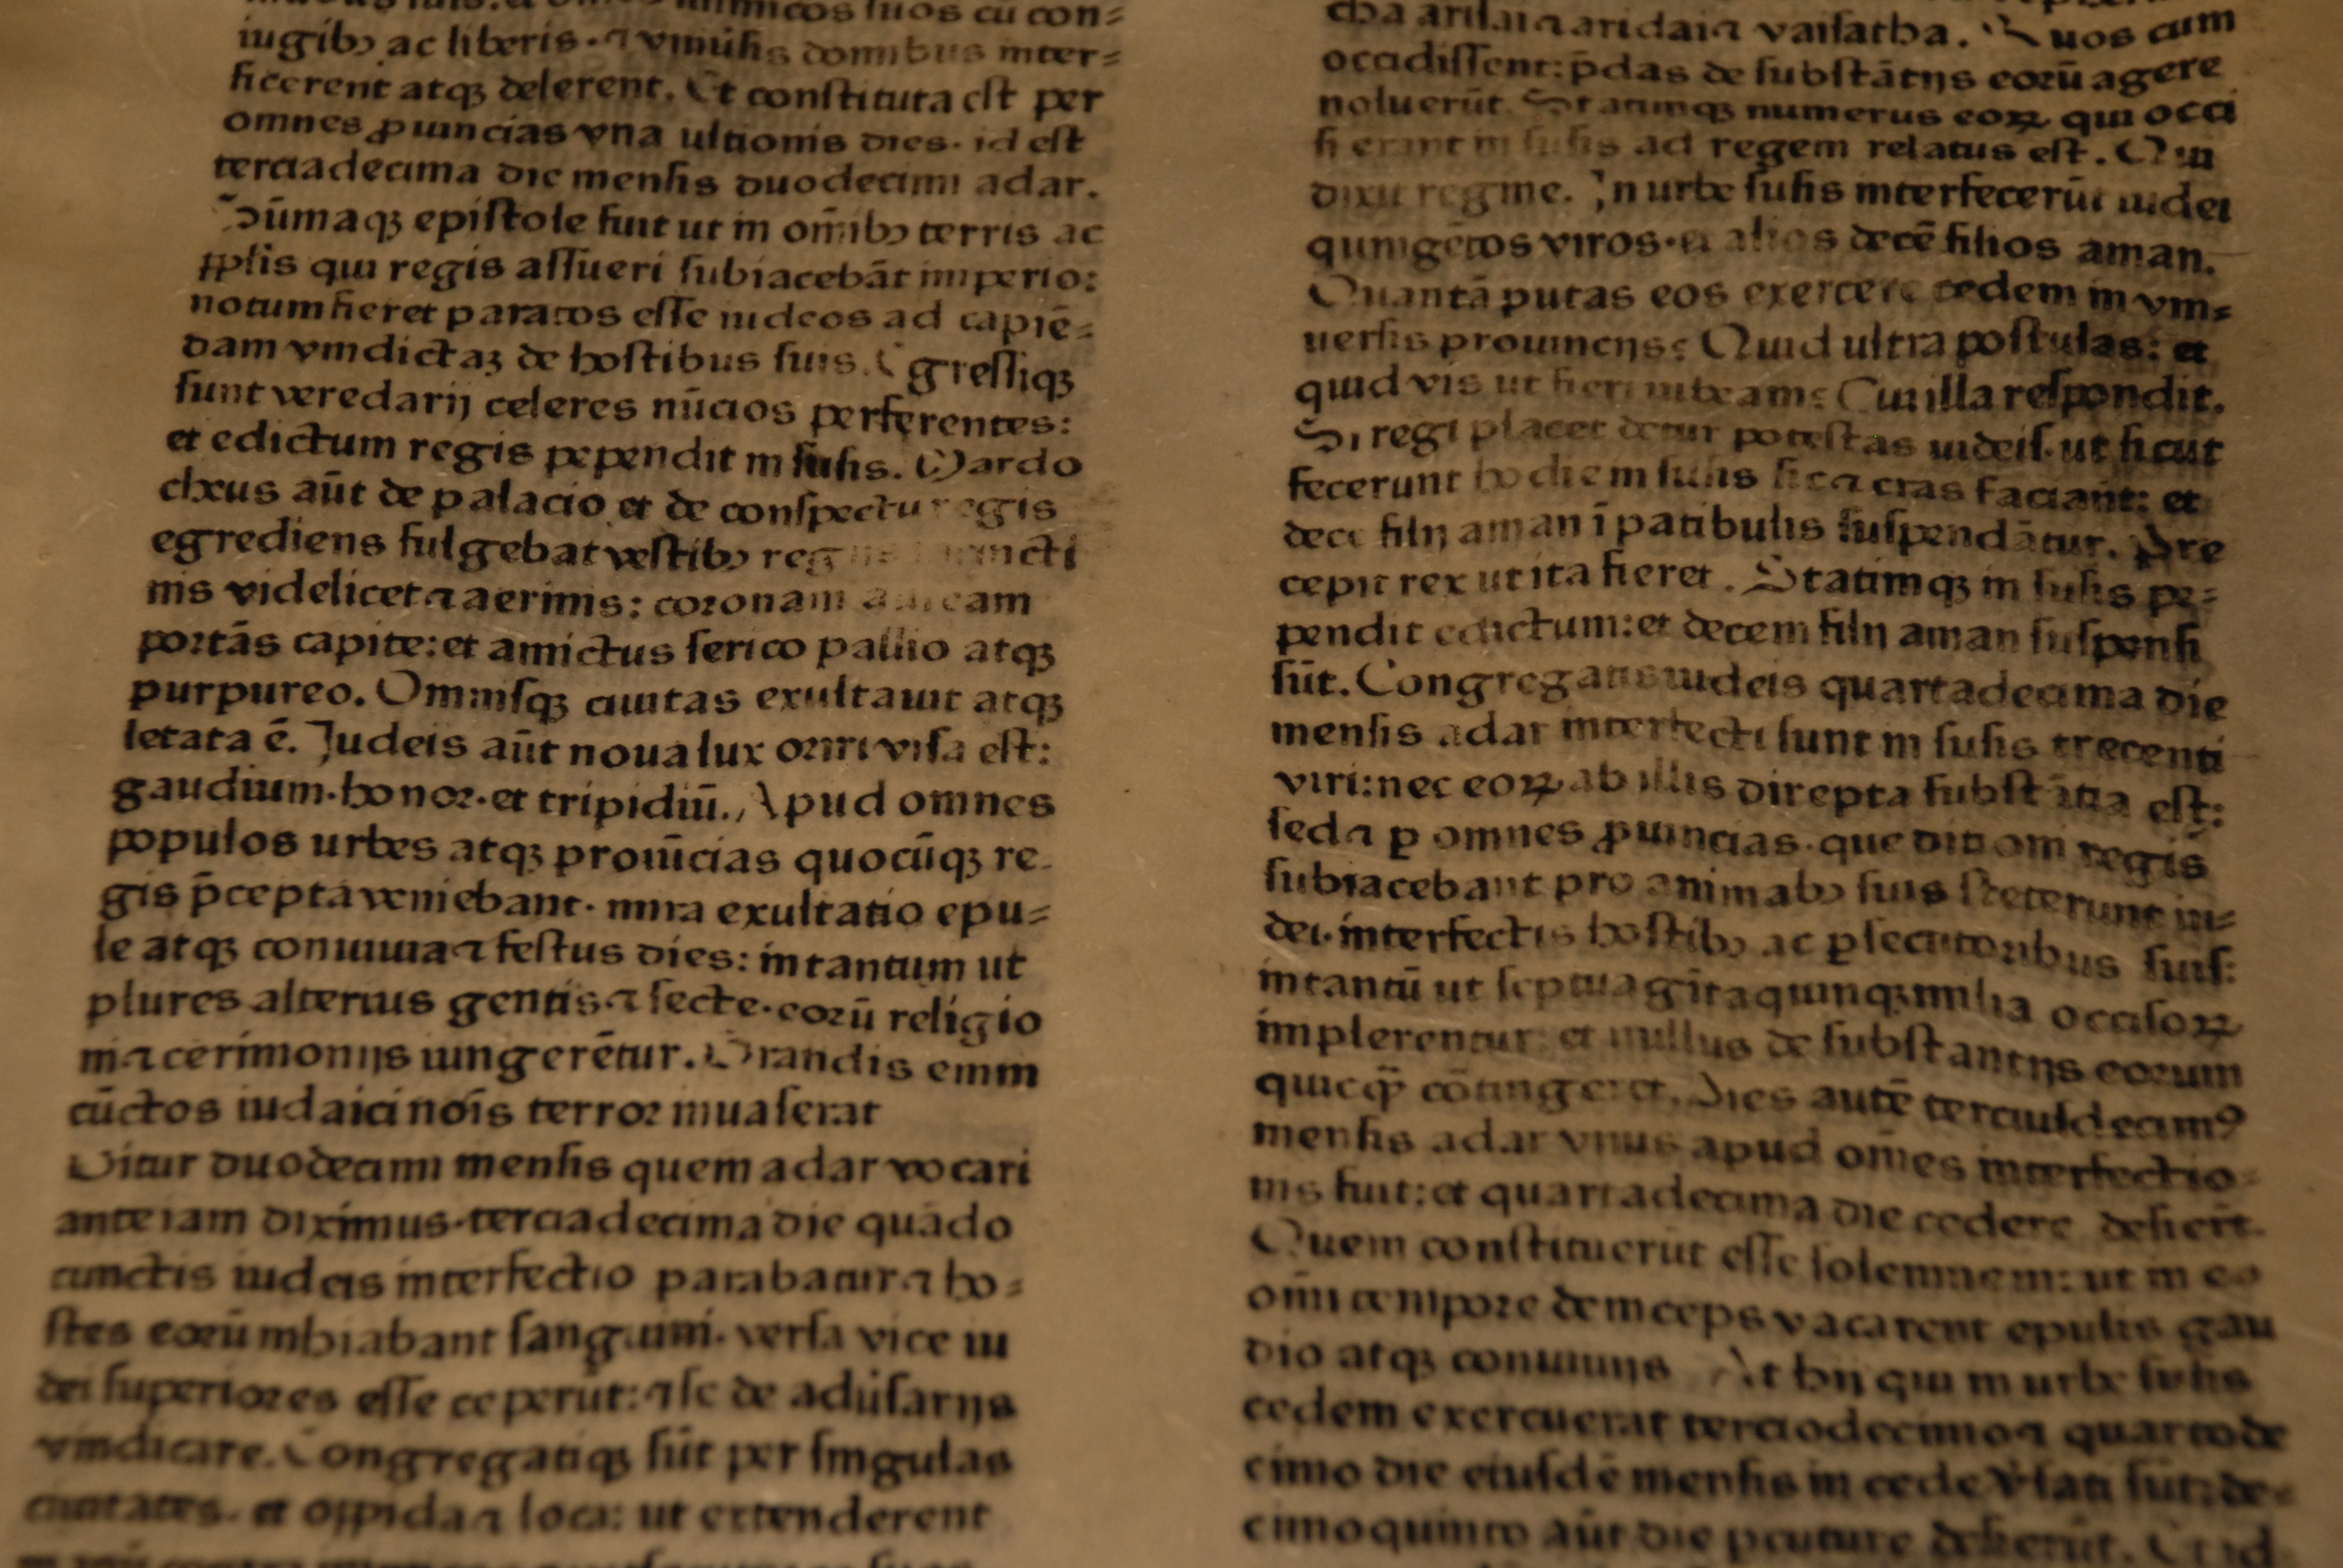 inimicos suos cū con⸗
iugibꝫ ac liberis · ⁊ vniūsis domibus inter⸗
ficerent atqꝫ delerent. Et constituta est per
omnes ꝓuincias vna ultionis dies · id est
terciadecima die mensis duodecimi adar.
Sūmaqꝫ epistole fuit ut in om̄ibꝫ terris ac
pplis qui regis assueri subiacebāt imperio:
notum fieret paratos esse iudeos ad capiē⸗
dam vindictaꝫ de hostibus suis. Egressiqꝫ
sunt veredarij celeres nūcios perferentes:
et edictum regis pependit in susis. Mardo
cheus aūt de palacio et de conspectu regis
egrediens fulgebat vestibꝫ regijs iacincti
nis videlicet ⁊ aerinis: coronam auream
portās capite: et amictus serico pallio atqꝫ
purpureo. Omnisqꝫ ciuitas exultauit atqꝫ
letata ē. Judeis aūt noua lux oriri visa est:
gaudium · honor · et tripidiū. Apud omnes
populos urbes atqꝫ prouīcias quocūqꝫ re
gis p̄cepta veniebant · mira exultatio epu⸗
le atqꝫ conuiuia ⁊ festus dies: in tantum ut
plures alterius gentis · ⁊ secte · eorū religio
ni ⁊ cerimonijs iungerētur. Grandis enim
cūctos iudaici noīs terror inuaserat
Gitur duodecimi mensis quem adar vocari
ante iam diximus · terciadecima die quādo
cunctis iudeis interfectio parabatur ⁊ ho⸗
stes eorū inhiabant sanguini · versa vice iu
dei superiores esse ceperūt: ⁊ se de adūsarijs
vindicare. Congregatiqꝫ sūt per singulas
ciuitates · et oppida ⁊ loca: ut extenderent
suas
cha arisai ⁊ aridai ⁊ vaisatha. Quos cum
occidissent: p̄das de substātijs eorū agere
noluerūt. Statimqꝫ numerus eoꝝ qui occi
si erant in susis ad regem relatus est. Qui
dixit regine. In urbe susis interfecerūt iudei
quingētos viros · et alios decē filios aman.
Quantā putas eos exercere cedem in vni⸗
uersis prouincijs? Quid ultra postulas: et
quid vis ut fieri iubeam? Cui illa respondit.
Si regi placet detur potestas iudeis · ut sicut
fecerunt hodie in susis sic ⁊ cras faciant: et
decē filij aman ī patibulis suspendātur. Pre
cepit rex ut ita fieret. Statimqꝫ in susis pe⸗
pendit edictum: et decem filij aman suspensi
sūt. Congregatis iudeis quartadecima die
mensis adar interfecti sunt in susis trecenti
viri: nec eoꝝ ab illis direpta substātia est:
sed ⁊ ꝑ omnes ꝓuincias · que dition̄i regis
subiacebant pro animabꝫ suis steterunt iu⸗
dei · interfectis hostibꝫ ac ꝑsecutoribus suis:
in tantū ut septuagītaquinqꝫ milia occisoꝝ
implerentur: et nullus de substantijs eorum
quicq̄ cōtingeret. Dies autē terciusdecimꝰ
mensis adar vnus apud om̄es interfectio⸗
nis fuit: et quartadecima die cedere desiert̄.
Quem constituerūt esse solemnem: ut in eo
om̄i tempore deinceps vacarent epulis gau
dio atqꝫ conuiuijs. At hij qui in urbe susis
cedem exercuerāt terciodecimo ⁊ quartode
cimo die eiusdē mensis in cede v̄sati sūt: de⸗
cimoquinto aūt die ꝑcutere desierūt.